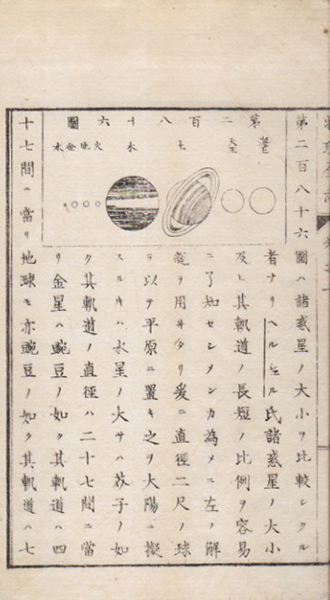 第二百八十六圖ハ諸惑星ノ大小ヲ比較シタル
第二百八十六圖
海王
天王
土
木
火
地
金
水
者ナリヘルシェル氏諸惑星ノ大小
及ヒ其軌道ノ長短ノ比例ヲ容易
ニ了知セシメンカ為メニ左ノ解
說ヲ用ヰタリ爰ニ直徑二尺ノ球
ヲ以テ平原ニ置キ之ヲ大陽ニ擬
スルキハ水星ノ大サハ芥子ノ如
ク其軌道ノ直徑ハ二十七間ニ當
リ金星ハ豌豆ノ如ク其軌道ハ四
十七間ニ當リ地球モ亦豌豆ノ如ク其軌道ハ七